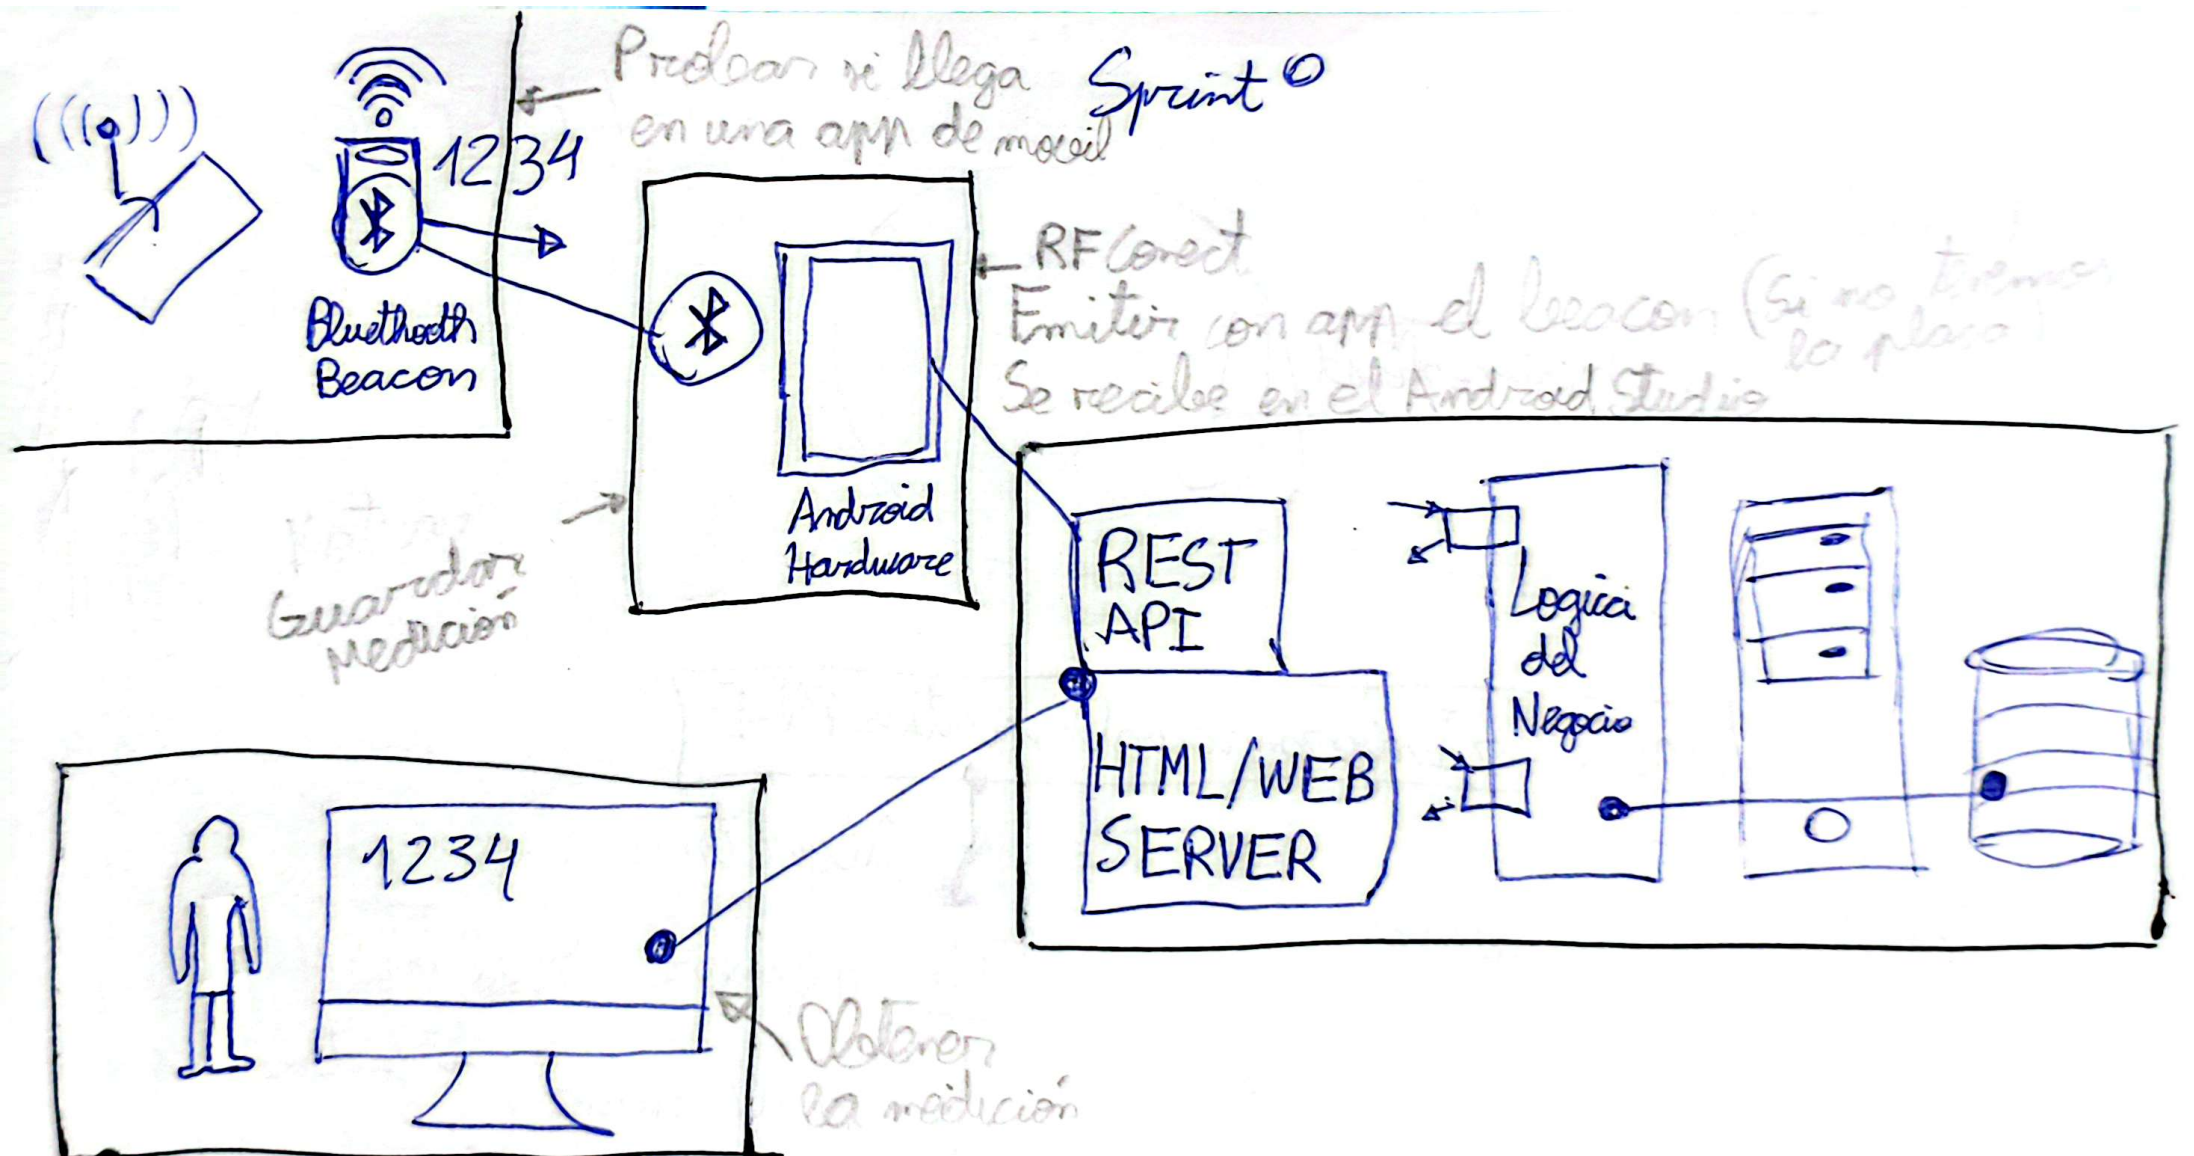 Probar si llega
en una app de movil
Sprint 0
1234
Bluethooth
Beacon
RF Conect
Emitir con app el beacon (Si no tenemos
la placa)
Se recibe en el Android Studio
Android
Hardware
Guardar
Medición
REST
API
HTML/WEB
SERVER
Logica
del
Negocio
1234
Obtener
la medición